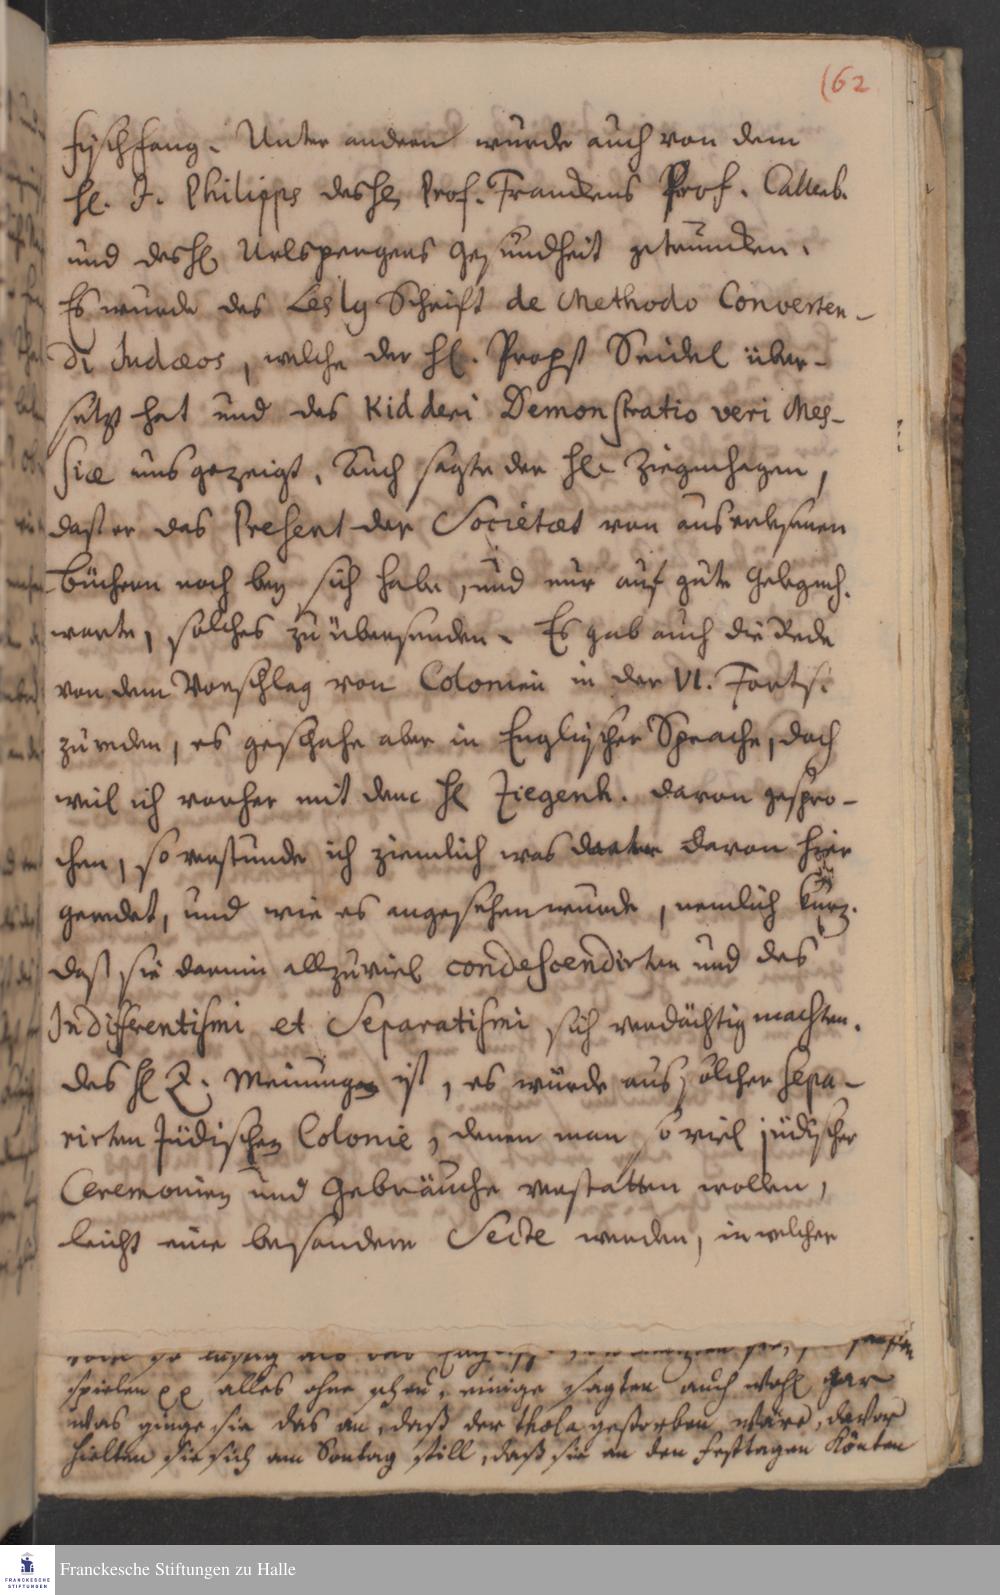 (62
fischfang. Unter andern wurde auch von dem
H. J. Philipps des H. Prof. Franckens Prof. Callenb.
und des H. Urlspergers Gesundheit getruncken.
Es wurde des Lesly Schrifft de Methodo Converten-
di Judæos, welche der H. Propst Seidel über-
setzt hat und des Kidderi Demonstratio veri Mes-
siæ uns gezeigt. Auch sagte der H. Ziegenhagen,
daß er das Present der Societæt von auserlesenen
Büchern noch bey sich habe, und nur auf gute Gelegenh.
warte, solches zu übersenden. Es gab auch die Rede
von dem Vorschlag von Colonien in der VI. Forts.
zu reden, es geschahe aber in Englischer Sprache, doch
weil ich vorher mit dem H Ziegenh. davon gespro-
chen, so verstunde ich ziemlich was davon hier
geredet, und wie es angesehen wurde, nemlich kurz.
daß sie darinn allzuviel condescendirten und des
Indifferentismi et Separatismi sich verdächtig machten.
Des H Z. Meinungen ist, es würde aus solcher sepa-
rirten Jüdischen Colonie, denen man so viel jüdischer
Ceremonien und Gebräuche verstatten wollen,
leicht eine besondere Secte werden, in welcher
spielen alles ohne scheu, einige sagten auch wohl gar
was ginge sie das an, daß der thola gestorben wäre, davor
hielten sie sich am Sontag still, daß sie an den Festtagen könten
Franckesche Stiftungen zu Halle
FRANCKESCHE
STIFTUNGEN